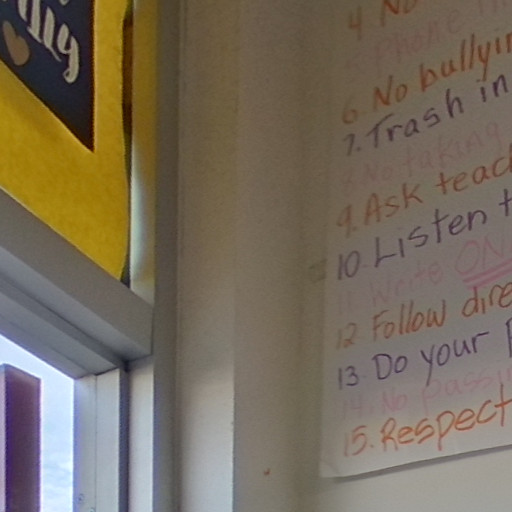 4 No
5. Phone
6. No bullyin
7. Trash in
8. No taking
9. Ask teac
10. Listen t
11. Write ON
12 Follow dire
13. Do your
14. No passi
15. Respect